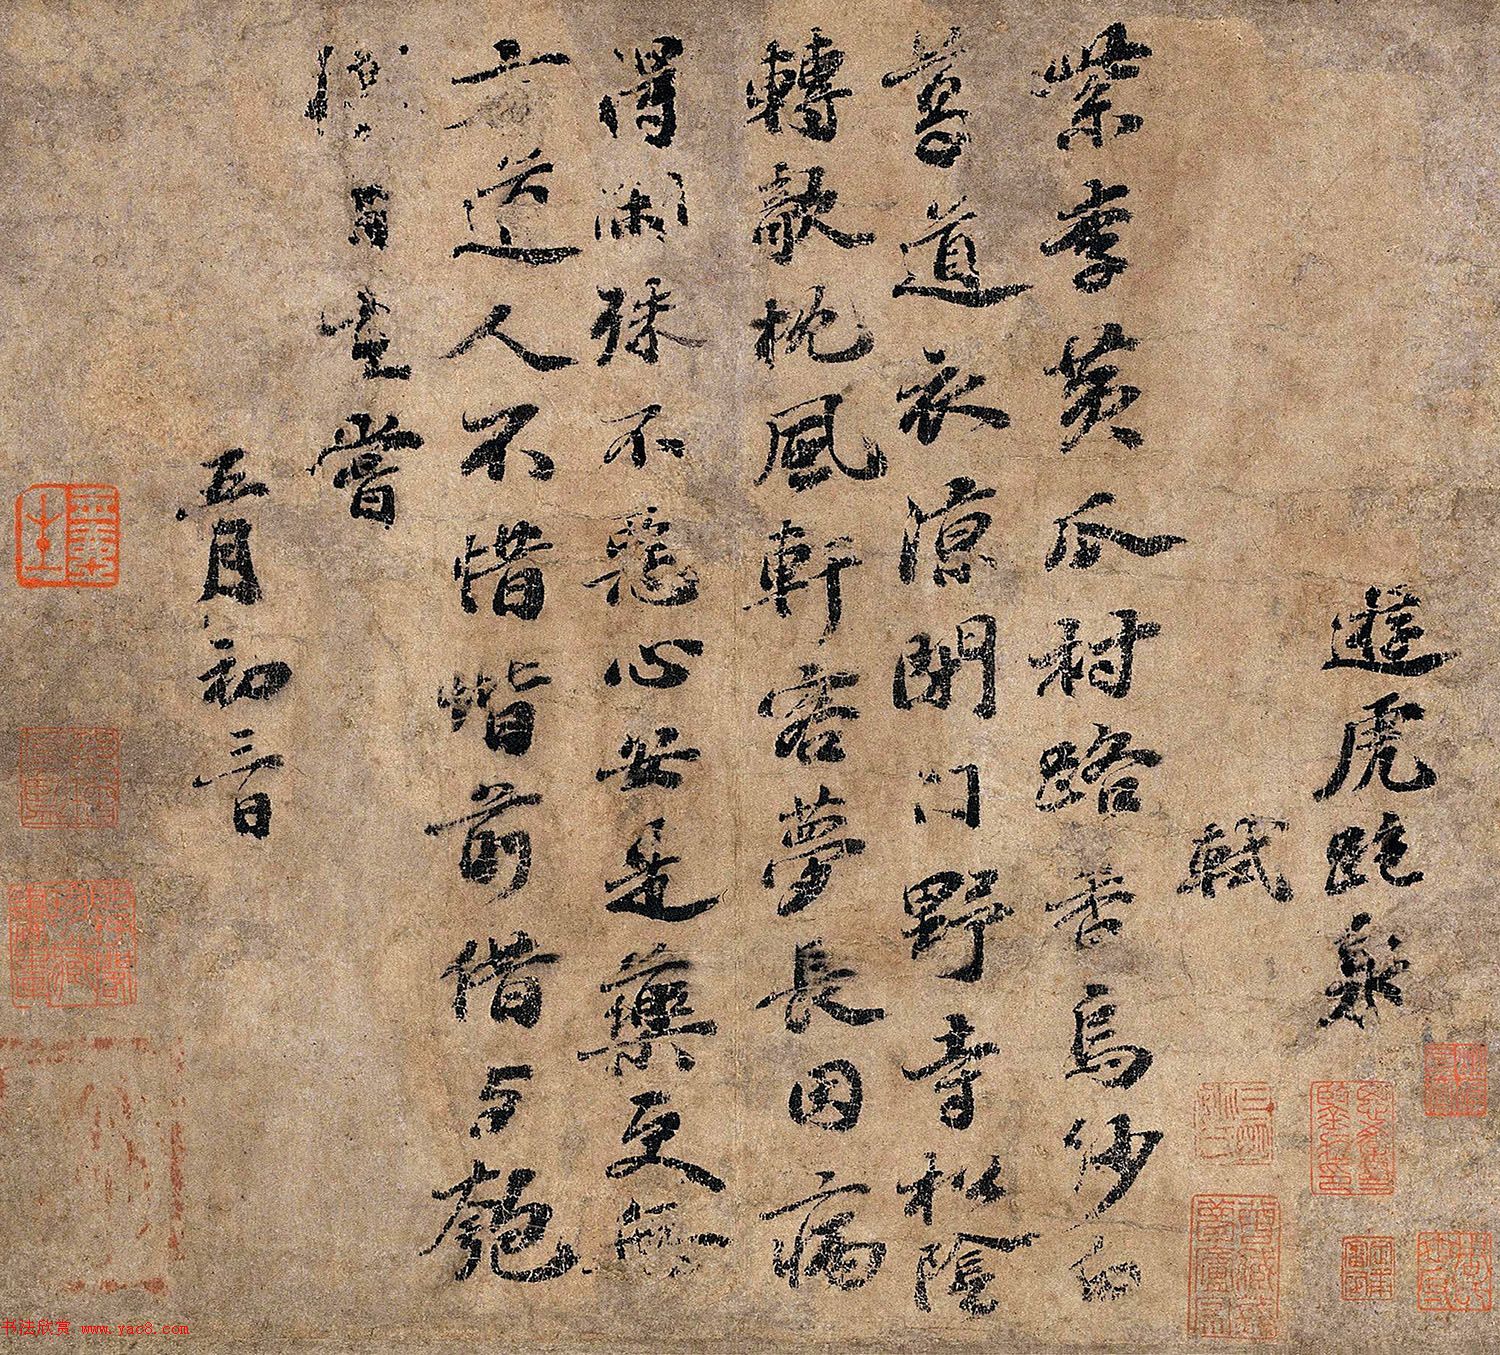 遊虎跑泉
軾
紫李黃瓜村路香烏紗白
葛道衣涼閉門野寺松陰
轉欹枕風軒客夢長因病
得閑殊不惡心安是藥更無
方道人不惜堦前借与匏
樽自在嘗
五月初三日
书法欣赏 www.yac8.com